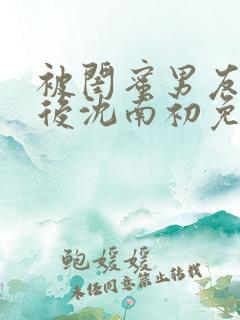 被閨蜜男友
後沈南初免
鲍媛媛
未经同意禁止转载